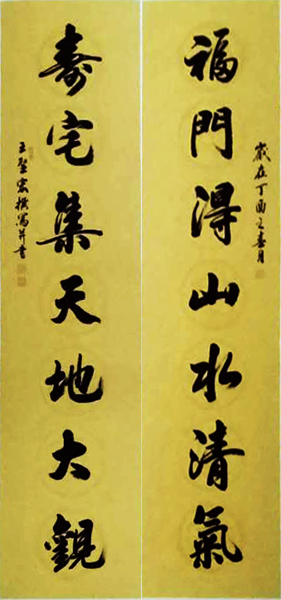 福門得山水清氣
歲在丁酉之春月
壽宅集天地大觀
王聖宏撰寫并書